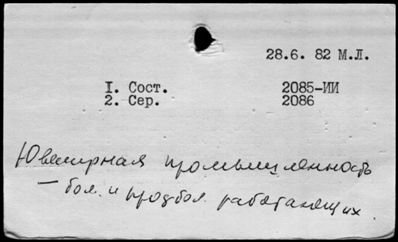 28.6. 82 М.Л.
1. Сост. 2085-ИИ
2. Сер. 2086
Ювелирная промышленность
— бол. и профбол. работающих.